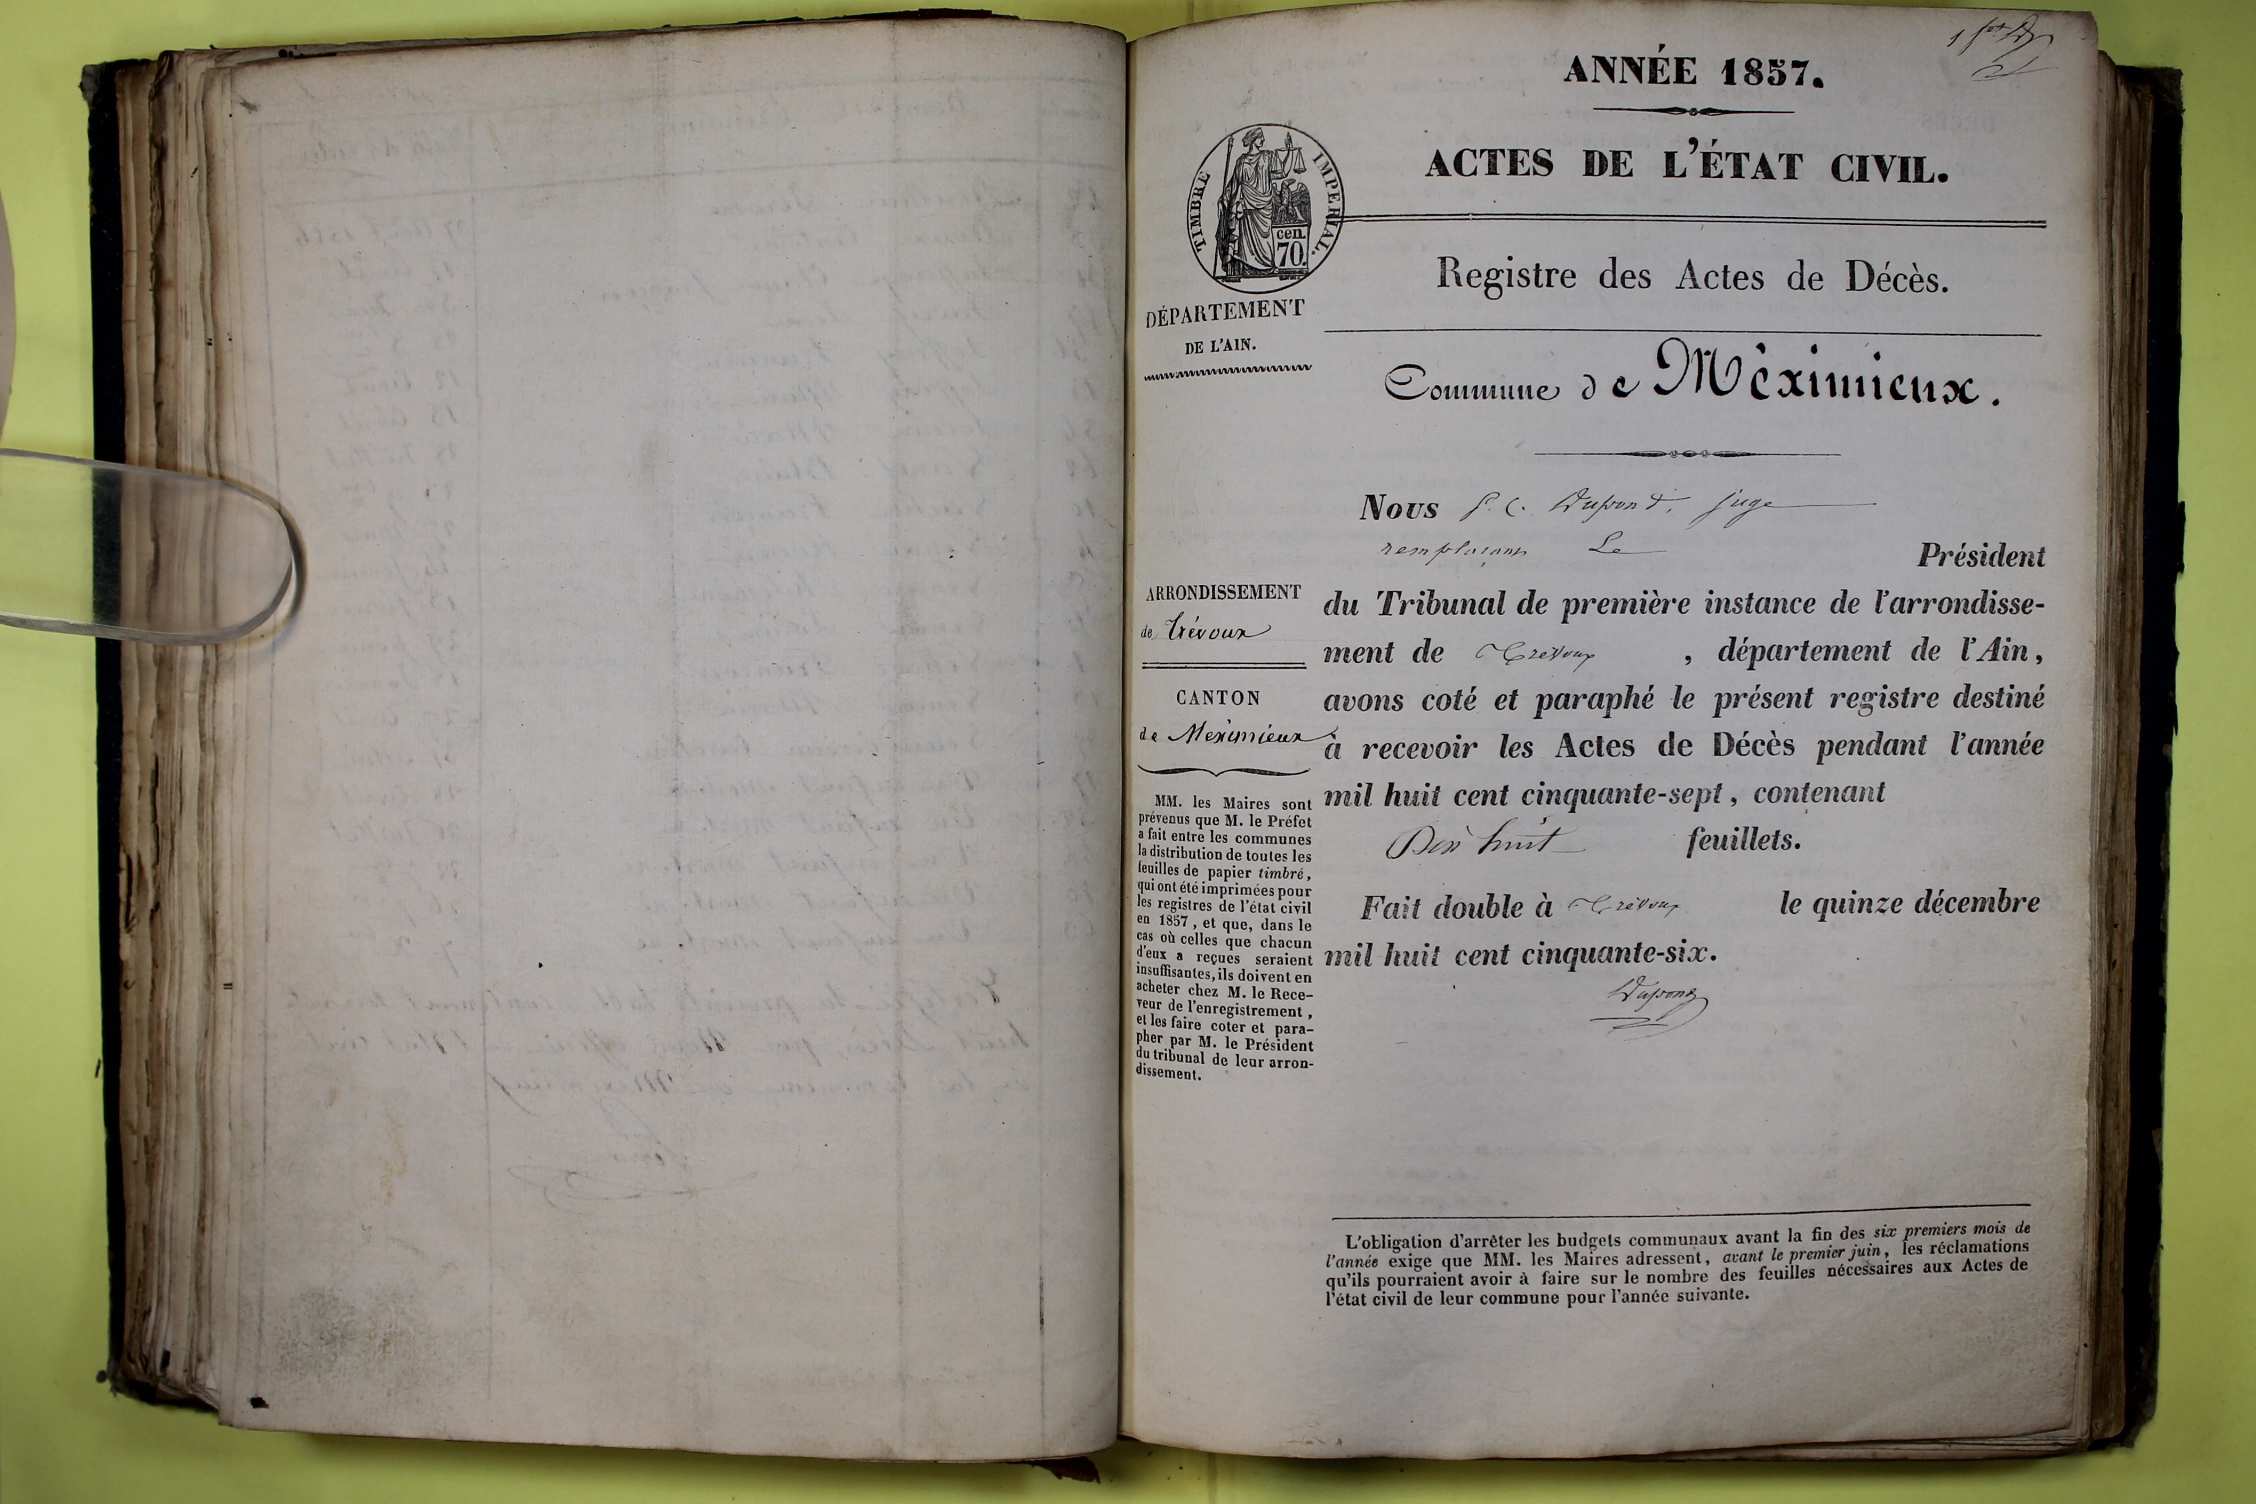 ANNÉE 1857.
ACTES DE L'ÉTAT CIVIL.
TIMBRE IMPERIAL.
cen.
70.
Registre des Actes de Décès.
DÉPARTEMENT
DE L'AIN.
Commune de Méximieux.
Nous Dupond, juge
remplaçant Le
Président
ARRONDISSEMENT
de Trévoux
CANTON
de Meximieux
du Tribunal de première instance de l'arrondisse-
ment de Trevoux, département de l'Ain,
avons coté et paraphé le présent registre destiné
à recevoir les Actes de Décès pendant l'année
mil huit cent cinquante-sept, contenant
Dix huit feuillets.
Fait double à Trévoux le quinze décembre
mil huit cent cinquante-six.
Dupond
MM. les Maires sont
prévenus que M. le Préfet
a fait entre les communes
la distribution de toutes les
feuilles de papier timbré,
qui ont été imprimées pour
les registres de l'état civil
en 1857, et que, dans le
cas où celles que chacun
d'eux a reçues seraient
insuffisantes, ils doivent en
acheter chez M. le Rece-
veur de l'enregistrement,
et les faire coter et para-
pher par M. le Président
du tribunal de leur arron-
dissement.
L'obligation d'arrêter les budgets communaux avant la fin des six premiers mois de
l'année exige que MM. les Maires adressent, avant le premier juin, les réclamations
qu'ils pourraient avoir à faire sur le nombre des feuilles nécessaires aux Actes de
l'état civil de leur commune pour l'année suivante.